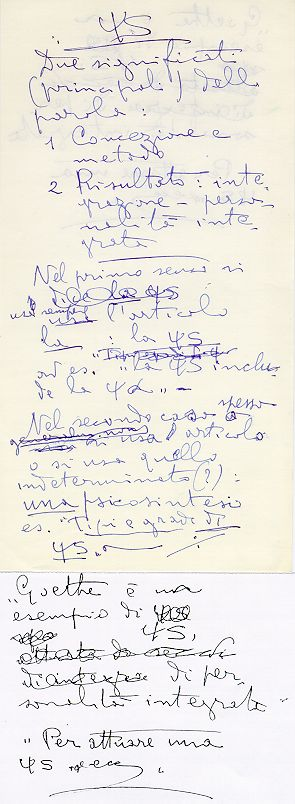 ΨS
Due significati
(principali) della
parola:
1 Concezione e
metodo
2 Risultato: inte-
grazione - perso-
nalità inte-
grata
Nel primo senso si
usa sempre l'articolo
la : la ΨS
ad es. "La ΨS inclu-
de la Ψα" -
Nel secondo caso spesso
si usa l'articolo
o si usa quello
indeterminato (?) :
una psicosintesi
es. "Tipi e gradi di
ΨS"
"Goethe è un
esempio di
ΨS,
di per-
sonalità integrata"
"Per attuare una
ΨS ecc.